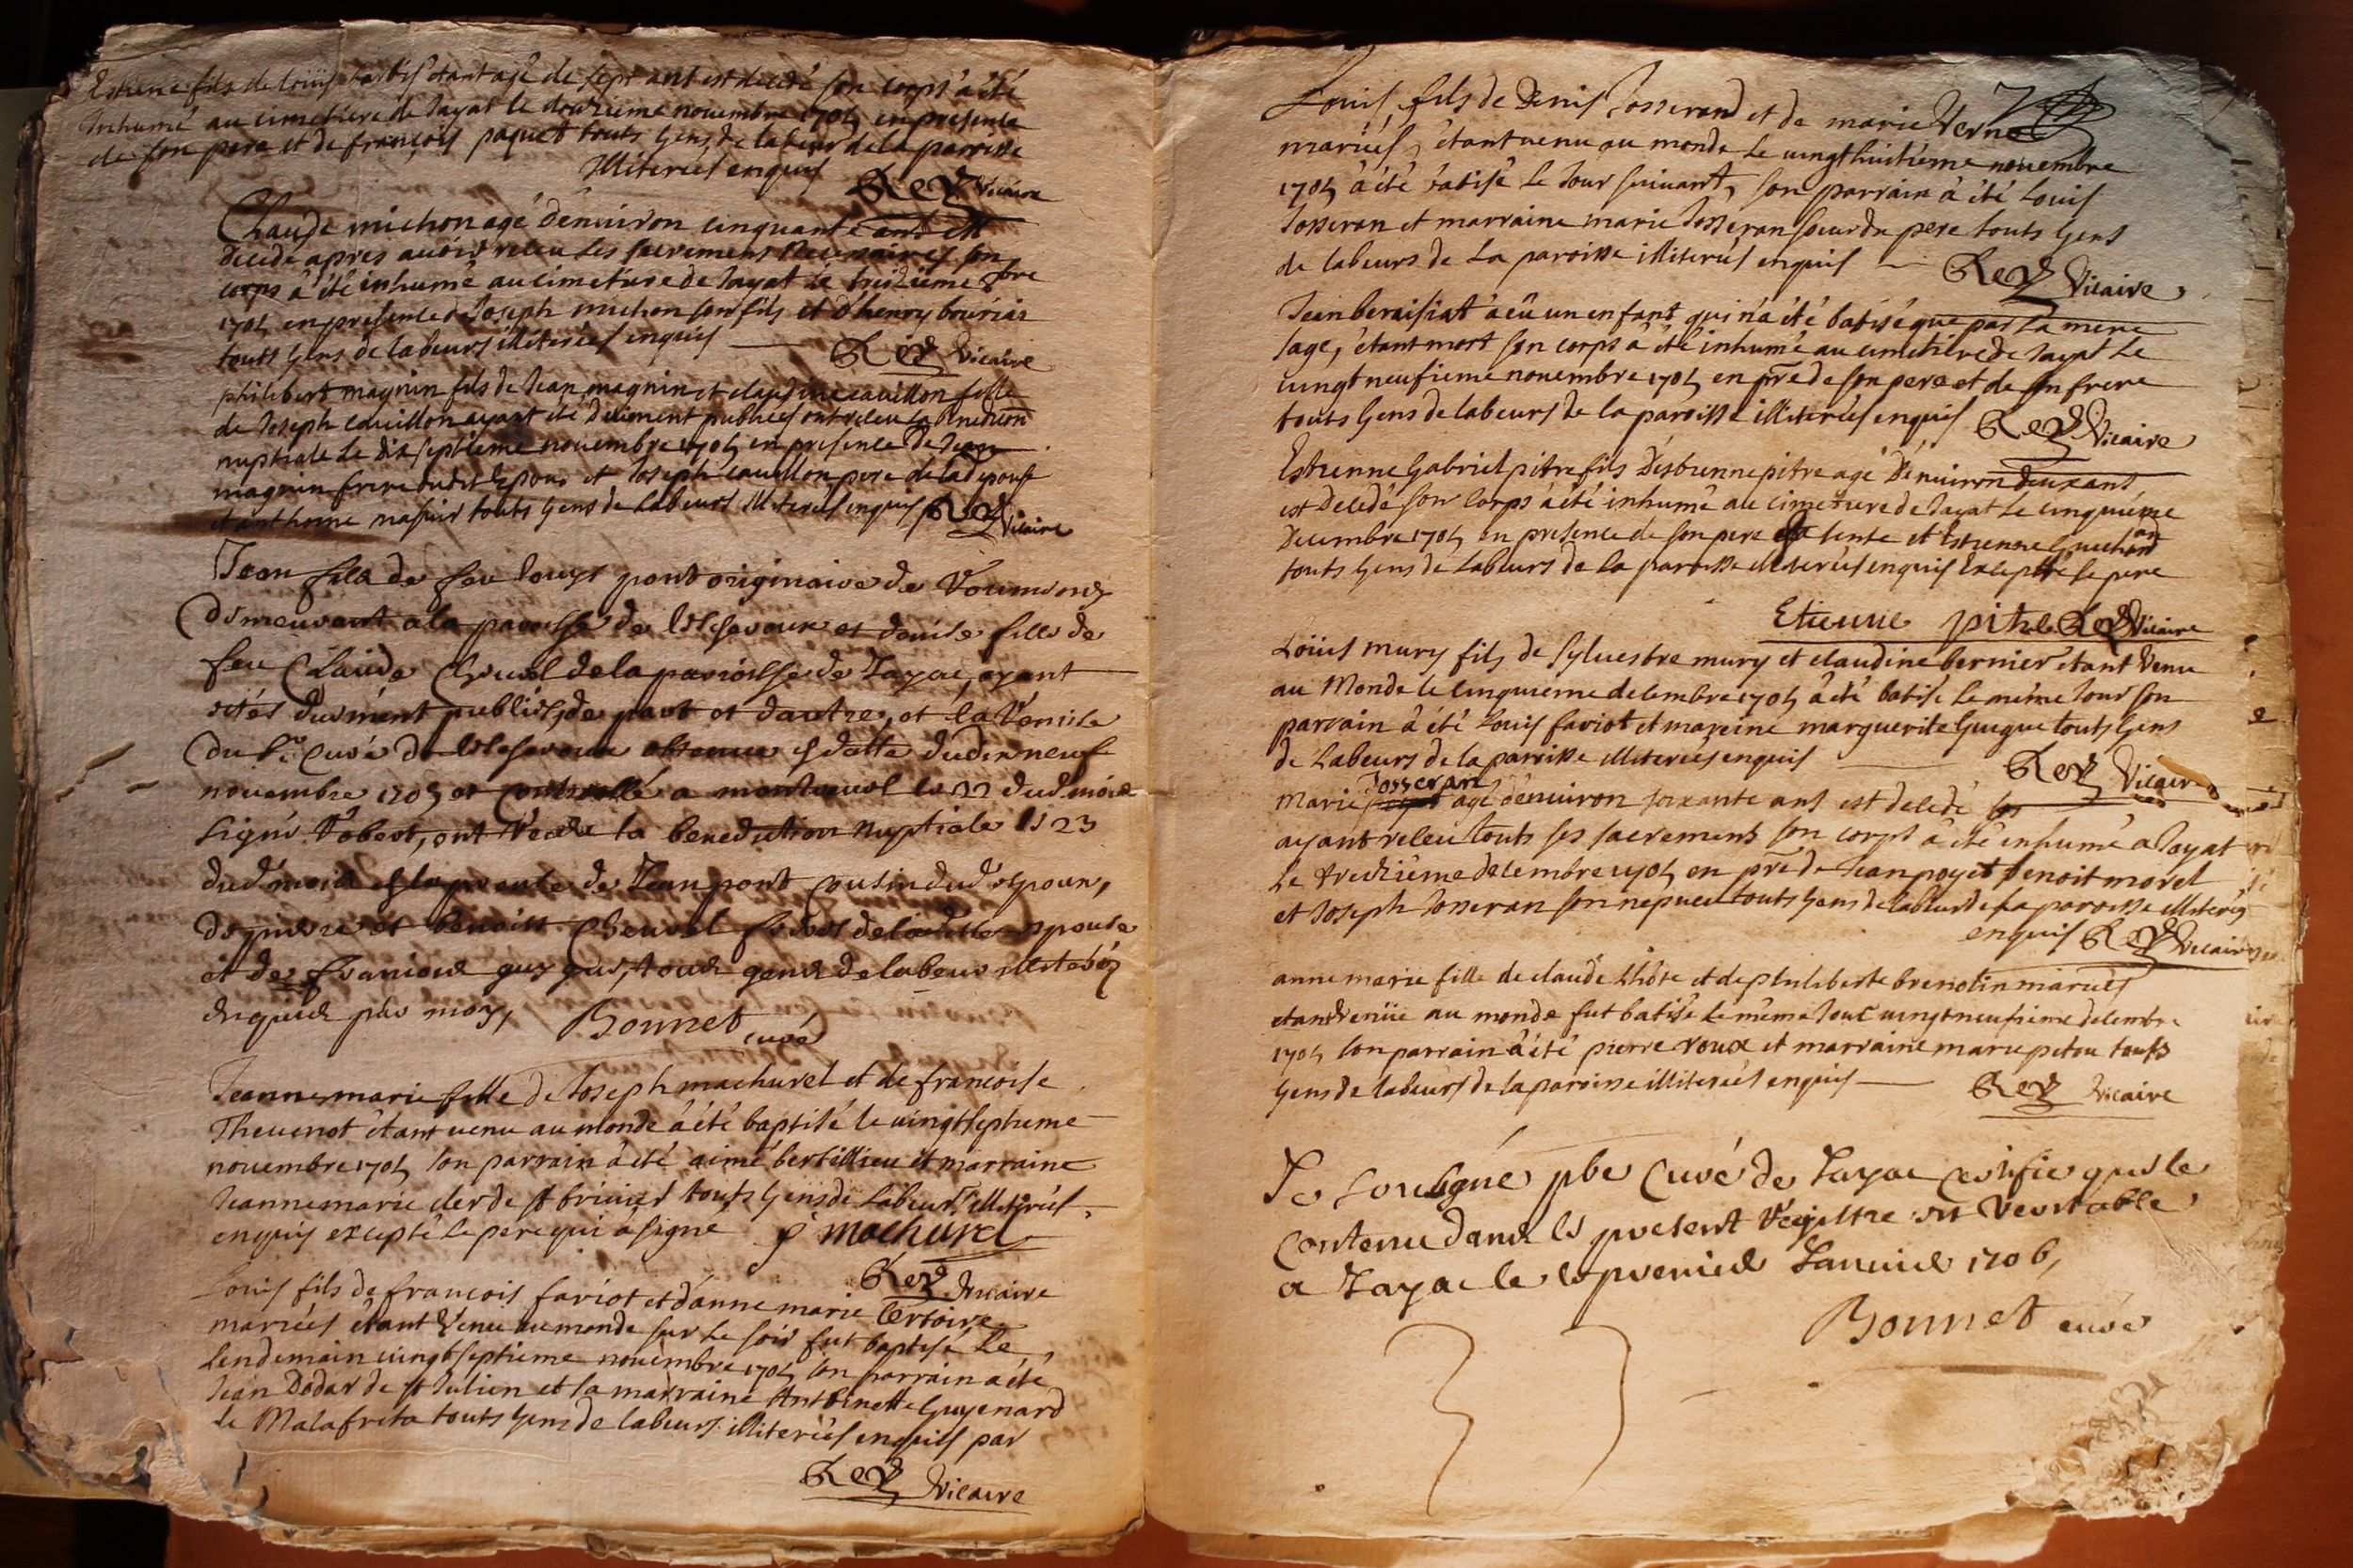 Estiene fils de loüis étant agé de sept ans est decedé son corps à été
Inhumé au cimetiere de Jayat le douzieme novembre 1705 en presence
de son pere et de françois paquet touts gens de labeur de la paroisse
illiterés enquis Rey vicaire
Claude michon agé d'environ cinquante ans est
decedé apres avoir receu les sacremens necessaires son
corps à été inhumé au cimetiere de Jayat le treizieme 9bre
1705 en presence de Joseph michon son fils et d'henry
touts gens de labeurs illiterées enquis Rey vicaire
philibert magnin fils de Jean magnin et claudine cavillon fille
de Joseph cavillon ayant été deüement publiées ont receu la benediction
nuptiale le dix septieme novembre 1705 en presence de Jean
magnin frere dudit Epoux et Joseph cavillon pere de lad epouse
et anthoine touts gens de labeurs illiterés enquis Rey vicaire
Jean fils de feu Louys pont originaire de
Demeurant a la paroisse de et denise fille de
feu Claude Chevrel de la paroisse de Jayac, ayant
estés duement publiés, de part et dautre, et la remise
du Sr. Curé de obtenue en datte du dixneuf
novembre 1705 et controllé a montrevel le 22 dud mois
signé Robert, ont receu la benediction nuptiale le 23
dud mois en la pnte de Jean pont cousin dud espoux,
de pierre et benoist Chevrel freres de laditte espouse
et de francois tous gens de labeur illiterés
enquis par moy, Bonnet curé
Jeanne marie fille de Joseph machurel et de francoise
Thevenot étant venu au monde à été baptisé le vingtseptieme
novembre 1705 son parrain à été aimé bertillieu et marraine
Jeanne marie clerde st touts gens de labeur illiterés
enquis excepté le pere qui à signé j machurel
Rey vicaire
Louis fils de francois fariot et d'anne marie Certoire
mariées étant venu au monde sur le soir fut baptisé le
lendemain vingtseptieme novembre 1705 son parrain à été
Jean Dodar de st Julien et la marraine Anthoinette Guyenard
de Malafreta touts gens de labeurs illiterées enquis par
Rey vicaire
Louis, fils de Denis Josserand et de marie Verne
mariés, étant venu au monde le vingthuitieme novembre
1705 à été batisé le Jour suivant, son parrain à été Louis
Josseran et marraine marie Josseran soeur du pere touts gens
de labeurs de la paroisse illiterés enquis Rey vicaire
Jean beraisiat à eû un enfant qui n'a été batisé que par la mere
sage, étant mort son corps à été inhumé au cimetiere de Jayat le
vingt neufieme novembre 1705 en pñe de son pere et de son frere
touts gens de labeurs de la paroisse illiterées enquis Rey vicaire
Estienne Gabriel pitre fils d'estienne pitre agé d'environ deux ans
est decedé son corps à été inhumé au cimetiere de Jayat le cinquiéme
Decembre 1705 en presence de son pere et Estienne Guichard
touts gens de labeurs de la paroisse illiterées enquis Excepté le pere
Etienne pitre Rey vicaire
Loüis mury fils de sylvestre mury et claudine bernier étant venu
au Monde le cinquieme decembre 1705 à été batisé le même Jour son
parrain à été Louis fariot et mareine marguerite Guigue touts gens
de Labeurs de la paroisse illiterées enquis Rey vicaire
Josseran
marie agé d'environ soixante ans est decedé
ayant receu touts ses sacrements son corps à été inhumé a Jayat
le treizieme decembre 1705 en pñe de Jean poyet benoit morel
et Joseph Josseran son nepveu touts gens de labeur de la paroisse illiterés
enquis Rey vicaire
anne marie fille de claude Lhôte et de philiberte brevotin mariés
etant venüe au monde fut batisé le même Jour vingtneufieme decembre
1705 son parrain à été pierre roux et marraine marie petou touts
gens de labeurs de la paroisse illiterés enquis Rey vicaire
Je soubsigné pbre Curé de Jayac certifie que le
contenu dans le present Registre est veritable
a Jayac le le premier Janvier 1706,
Bonnet curé